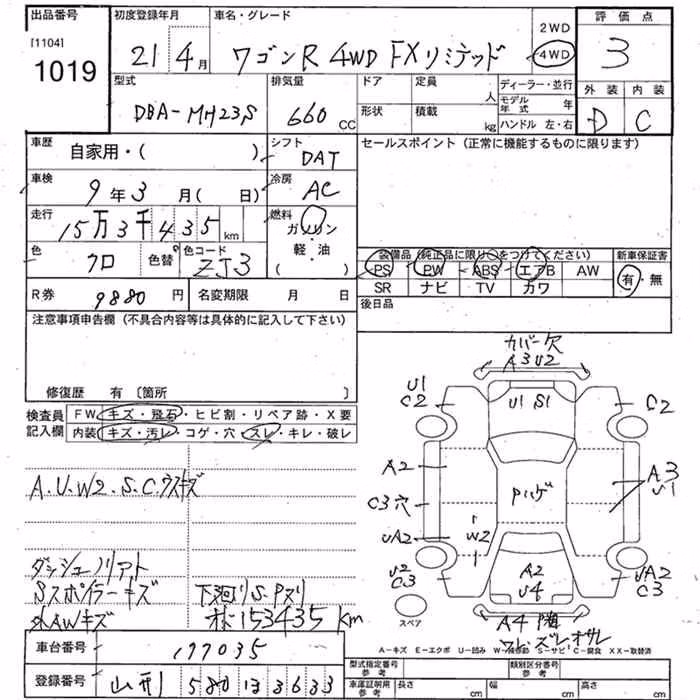 出品番号 初度登録年月 車名・グレード 2WD 評価点
[1104] 1019 21 4月 ワゴンR 4WD FXリミテッド 4WD 3
型式 排気量 ドア 定員 人 ディーラー・並行 外装 内装
DBA-MH23S 660 CC 形状 積載 kg モデル年式 年 D C
ハンドル 左・右
車歴 自家用・( ) シフト DAT セールスポイント (正常に機能するものに限ります)
車検 9年3月( 日) 冷房 AC
走行 15万3千435 km 燃料 ガソリン
軽・油
( )
色 クロ 色替 色コード ZJ3
装備品 (純正品に限り○をつけてください) 新車保証書
PS PW ABS エアB AW 有・無
SR ナビ TV カワ
R券 9880円 名変期限 月 日 後日品
注意事項申告欄 (不具合内容等は具体的に記入して下さい)
修復歴 有 〔箇所 〕
検査員記入欄 FW キズ・飛石・ヒビ割・リペア跡・X要
内装 キズ・汚レ・コゲ・穴・スレ・キレ・破レ
カバー欠
A3 U2
U1 C2 U1 S1 C2
A2 Pハゲ A3 U1
C3穴
UA2 W2
U2 C3 A2 U4 UA2 C3
スペア A4
A.U.W2.S.C.ウスキズ
ダッシュノリアト
Sスポイラーキズ 下廻りS.Pズリ
外AWキズ 153435km
車台番号 177035
登録番号 山形 580 3633
A−キズ E−エクボ U−凹み W−補修跡 S−サビ C−腐食 XX−取替済
型式指定番号 参考 類別区分番号 参考
車庫証明用 参考 長さ cm 幅 cm 高さ cm